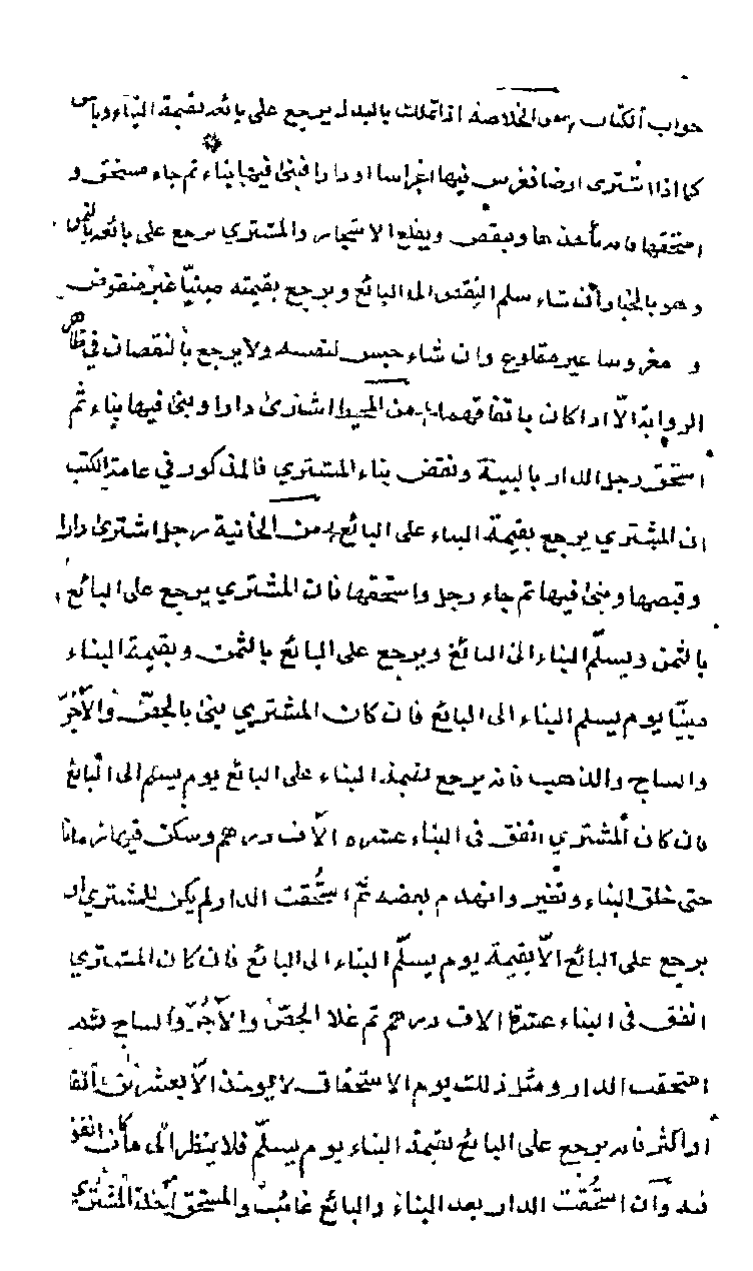 جواب الكتاب من الخلاصة اذا تملك بالبدل يرجع على بائعه بقيمة البناء وبا
كما اذا اشترى ارضا فغرس فيها اغراسا او دارا فبنى فيها بناء ثم جاء مستحق و
استحقها فانه يأخذها وينقض ويقلع الاشجار والمشتري يرجع على بائعه بالثمن
وهو بالخيار ان شاء سلم النقض الى البائع ويرجع بقيمته مبنيّا غير منقوض
و مغروسا غير مقلوع وان شاء حبس لنفسه ولا يرجع بالنقصان في ظاهر
الرواية الّا اذا كان باتفاقهما من المحيط اشترى دارا وبنى فيها بناء ثم
استحق رجل الدار بالبينة ونقض بناء المشتري فالمذكور في عامة الكتب
ان المشتري يرجع بقيمة البناء على البائع من الخانية رجل اشترى دارا
وقبضها وبنى فيها ثم جاء رجل واستحقها فان المشتري يرجع على البائع
بالثمن ويسلّم البناء الى البائع ويرجع على البائع بالثمن وبقيمة البناء
مبنيّا يوم يسلم البناء الى البائع فان كان المشتري بنى بالجصّ والآجُرّ
والساج والذهب فانه يرجع بقيمة البناء على البائع يوم يسلم الى البائع
فان كان المشتري انفق في البناء عشرة الآف درهم وسكن فيها زمانا
حتى خلق البناء وتغير وانهدم بعضه ثم استُحقت الدار لم يكن للمشتري ان
يرجع على البائع الّا بقيمة يوم يسلّم البناء الى البائع فان كان المشتري
انفق في البناء عشرة الاف درهم ثم غلا الجصّ والآجُرّ والساج ثم
استحقت الدار ومثل ذلك يوم الاستحقاق لا يوجد الّا بعشرين الفا
او اكثر فانه يرجع على البائع بقيمة البناء يوم يسلّم فلا ينظر الى ما كان انفق
فيه وان استُحقت الدار بعد البناء والبائع غائب والمستحق اخذ المشتري